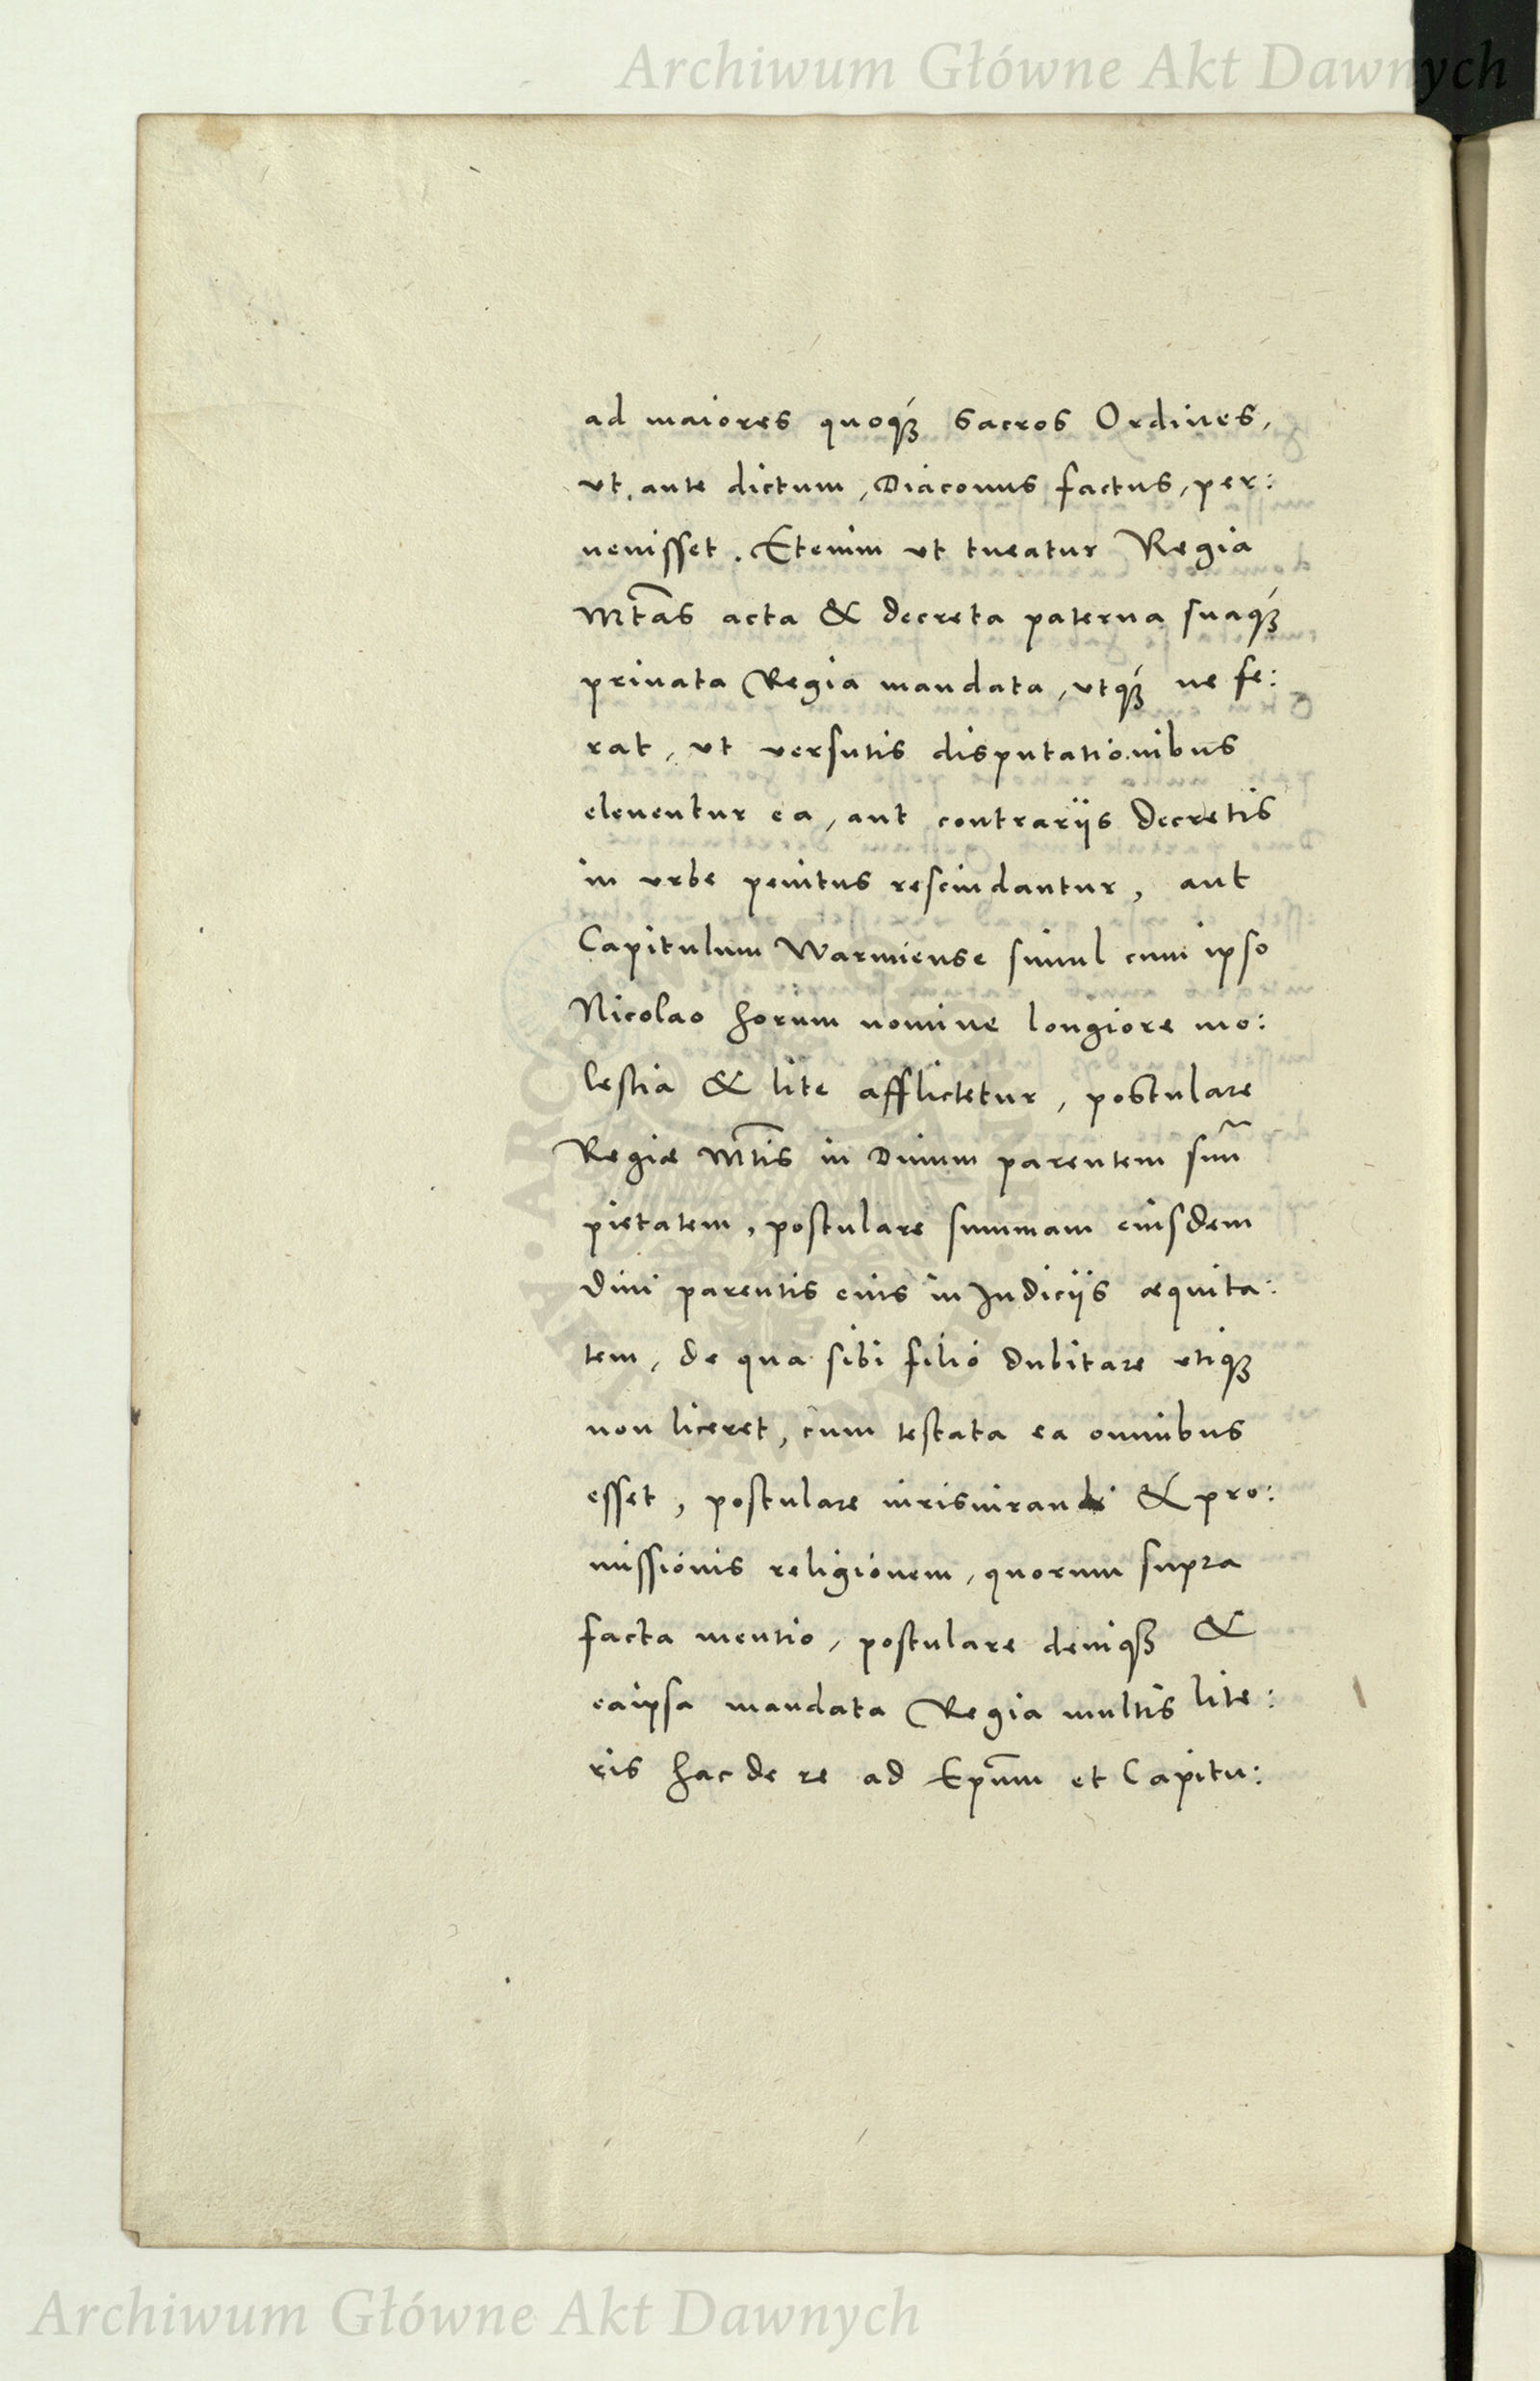 Archiwum Główne Akt Dawnych
ad maiores quoqꝫ sacros Ordines,
vt, ante dictum, Diaconus factus, per:
uenisset. Etenim vt tueatur Regia
Mtas acta & decreta paterna suaqꝫ
priuata Regia mandata, vtqꝫ ne fe:
rat, vt versutis disputationibus
eleuentur ea, aut contrariis Decretis
in vrbe penitus rescindantur, aut
Capitulum Warmiense simul cum ipso
Nicolao horum nomine longiore mo:
lestia & lite afflictetur, postulare
Regiæ Mtis in Diuum parentem suũ
pietatem, postulare summam eiusdem
Diui parentis eius in Judiciis æquita:
tem, de qua sibi filio dubitare vtiqꝫ
non liceret, cum testata ea omnibus
esset, postulare iurisiurandi & pro:
missionis religionem, quorum supra
facta mentio, postulare deniqꝫ &
eaipsa mandata Regia multis lite:
ris hac de re ad Epum et Capitu:
Archiwum Główne Akt Dawnych